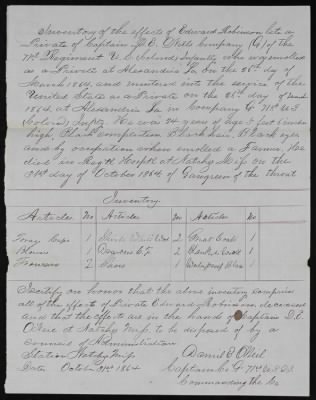 Inventory of the effects of Edward Robinson late a
Private of Captain D. C. O'Dells Company (G) of the
71st Regiment U.S. Colored Infantry who was enrolled
as a Private at Alexandria La on the day of
March 1864, and mustered into the service of the
United States as a Private on the day of
1864, at Alexandria La in Company G 71st U.S
Colored Infty. He was 24 years of age 5 feet inches
high, Black complexion Black hair, Black eyes
and by occupation when enrolled a Farmer. He
died in Regtl Hospt'l at Natchez Miss on the
day of October 1864 of Gangreen of the throat
Inventory
Articles No Articles No Articles No
Forage Caps 1 Shirts 2 Great Coats
Blouse 1 Drawers C.F. 2 Blankets
Trousers 2 1
I certify on honor that the above inventory comprises
all of the effects of Private Edward Robinson, deceased
and that the effects are in the hands of Captain D.C.
O'Dell at Natchez Miss. to be disposed of by a
Council of Administration
Station Natchez Miss. Daniel C. O'Dell
Date October 1864 Captain Co G 71st U.S.C.I.
Commanding the Co